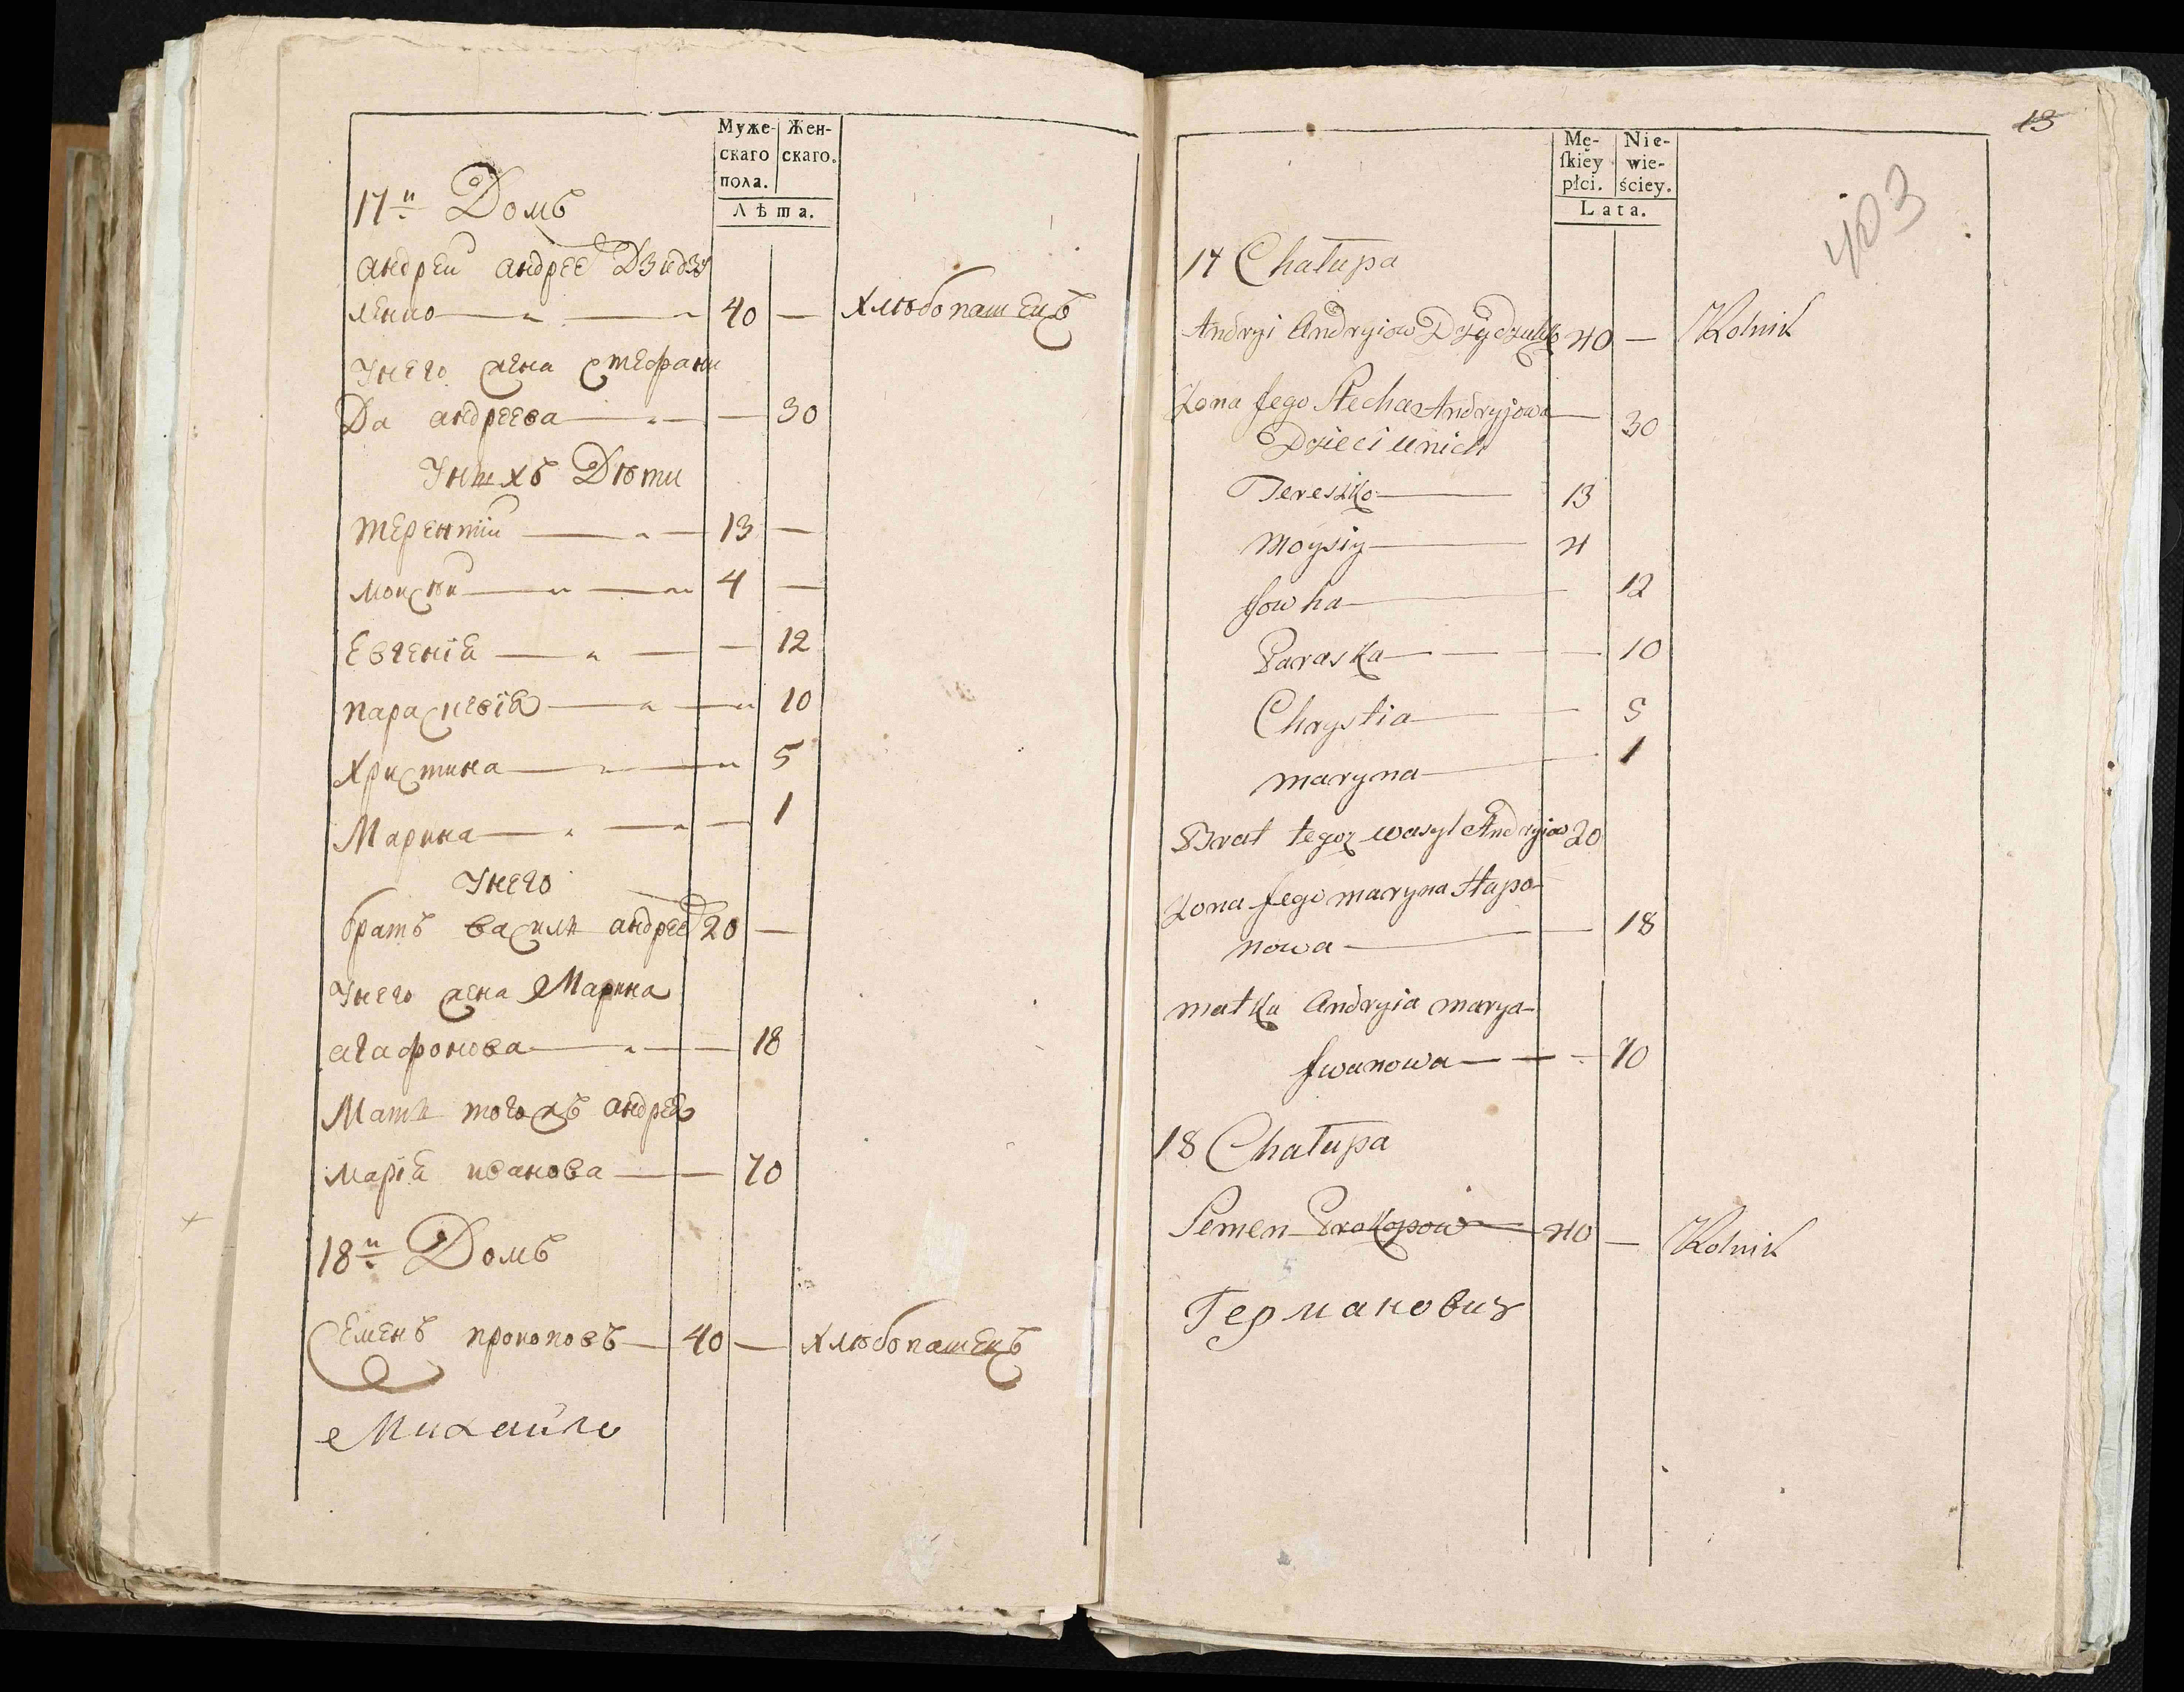 Муже- Жен-
скаго скаго.
пола.
Лѣта.
17й Домъ
андрей андреев Дзидзу
ленко 40 — хлѣбопашецъ
Унего жена стефани
Да андреева — 30
Унихъ Дѣти
терентий 13 —
моисѣй 4 —
Евгениа — 12
параскевиа 10
христина 5
Марина — 1
Унего
братъ василь андреев 20 —
Унего жена Марина
агафонова — 18
Мать тогожъ андрея
мариа иванова — 70
18й Домъ
Семенъ прокоповъ — 40 — хлѣбопашецъ
Михайло
13
403
Mę- Nie-
skiey wie-
płci. ściey.
Lata.
17 Chałupa
Andryi Andryiow 40 — Rolnik
Zona Jego Stecha Andryjowa — 30
Dzieci unich
Tereszko 13
Moysiy 4
Jowha 12
Paraska 10
Chrystia 5
maryna 1
Brat tegoz wasyl Andryiow 20
Zona Jego maryna Hapo-
nowa — 18
matka Andryia marya
Jwanowa — 70
18 Chałupa
Semen Prokopow 40 — Rolnik
Германович